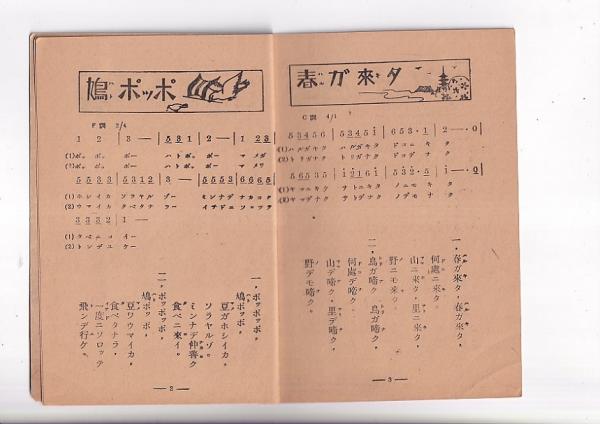 鳩ポッポ
F調 2/4
1 2 3 — | 5 5 3 1 | 2 — | 1 2 3
(1)ポッ ポッ ポー ハトポッ ポー マメガ
(2)ポッ ポッ ポー ハトポッ ポー マメワ
5 5 3 3 | 5 3 1 2 | 3 — | 5 5 5 5 | 6 6 6 5
(1)ホシイカ ソラヤル ゾー ミンナデ ナカヨク
(2)ウマイカ タベタナ ラー イチドニ ソロッテ
3 3 3 2 | 1 —
(1)タベニコ イー
(2)トンデユ ケー
一、ポッポッポ、
鳩ポッポ、
豆ガホシイカ、
ソラヤルゾ。
ミンナデ仲善ク
食ベニ來イ。
二、ポッポッポ、
鳩ポッポ、
豆ワウマイカ、
食ベタナラ、
一度ニソロッテ
飛ンデ行ケ。
— 2 —
春ガ來タ
C調
5 3 4 5 6 | 5 3 4 5 i | 6 5 3 · 1 | 2 — · 0 |
(1)ハルガキタ ハルガキタ ドコニキ タ
(2)トリガナク トリガナク ドコデナ ク
(1)ヤマニキタ サトニキタ ノニモキ タ
(2)ヤマデナク サトデナク ノデモナ ク
一、春ガ來タ、春ガ來タ、
何處ニ來タ。
山ニ來タ、里ニ來タ、
野ニモ來タ。
二、鳥ガ啼ク、鳥ガ啼ク、
何處デ啼ク。
山デ啼ク、里デ啼ク、
野デモ啼ク。
— 3 —